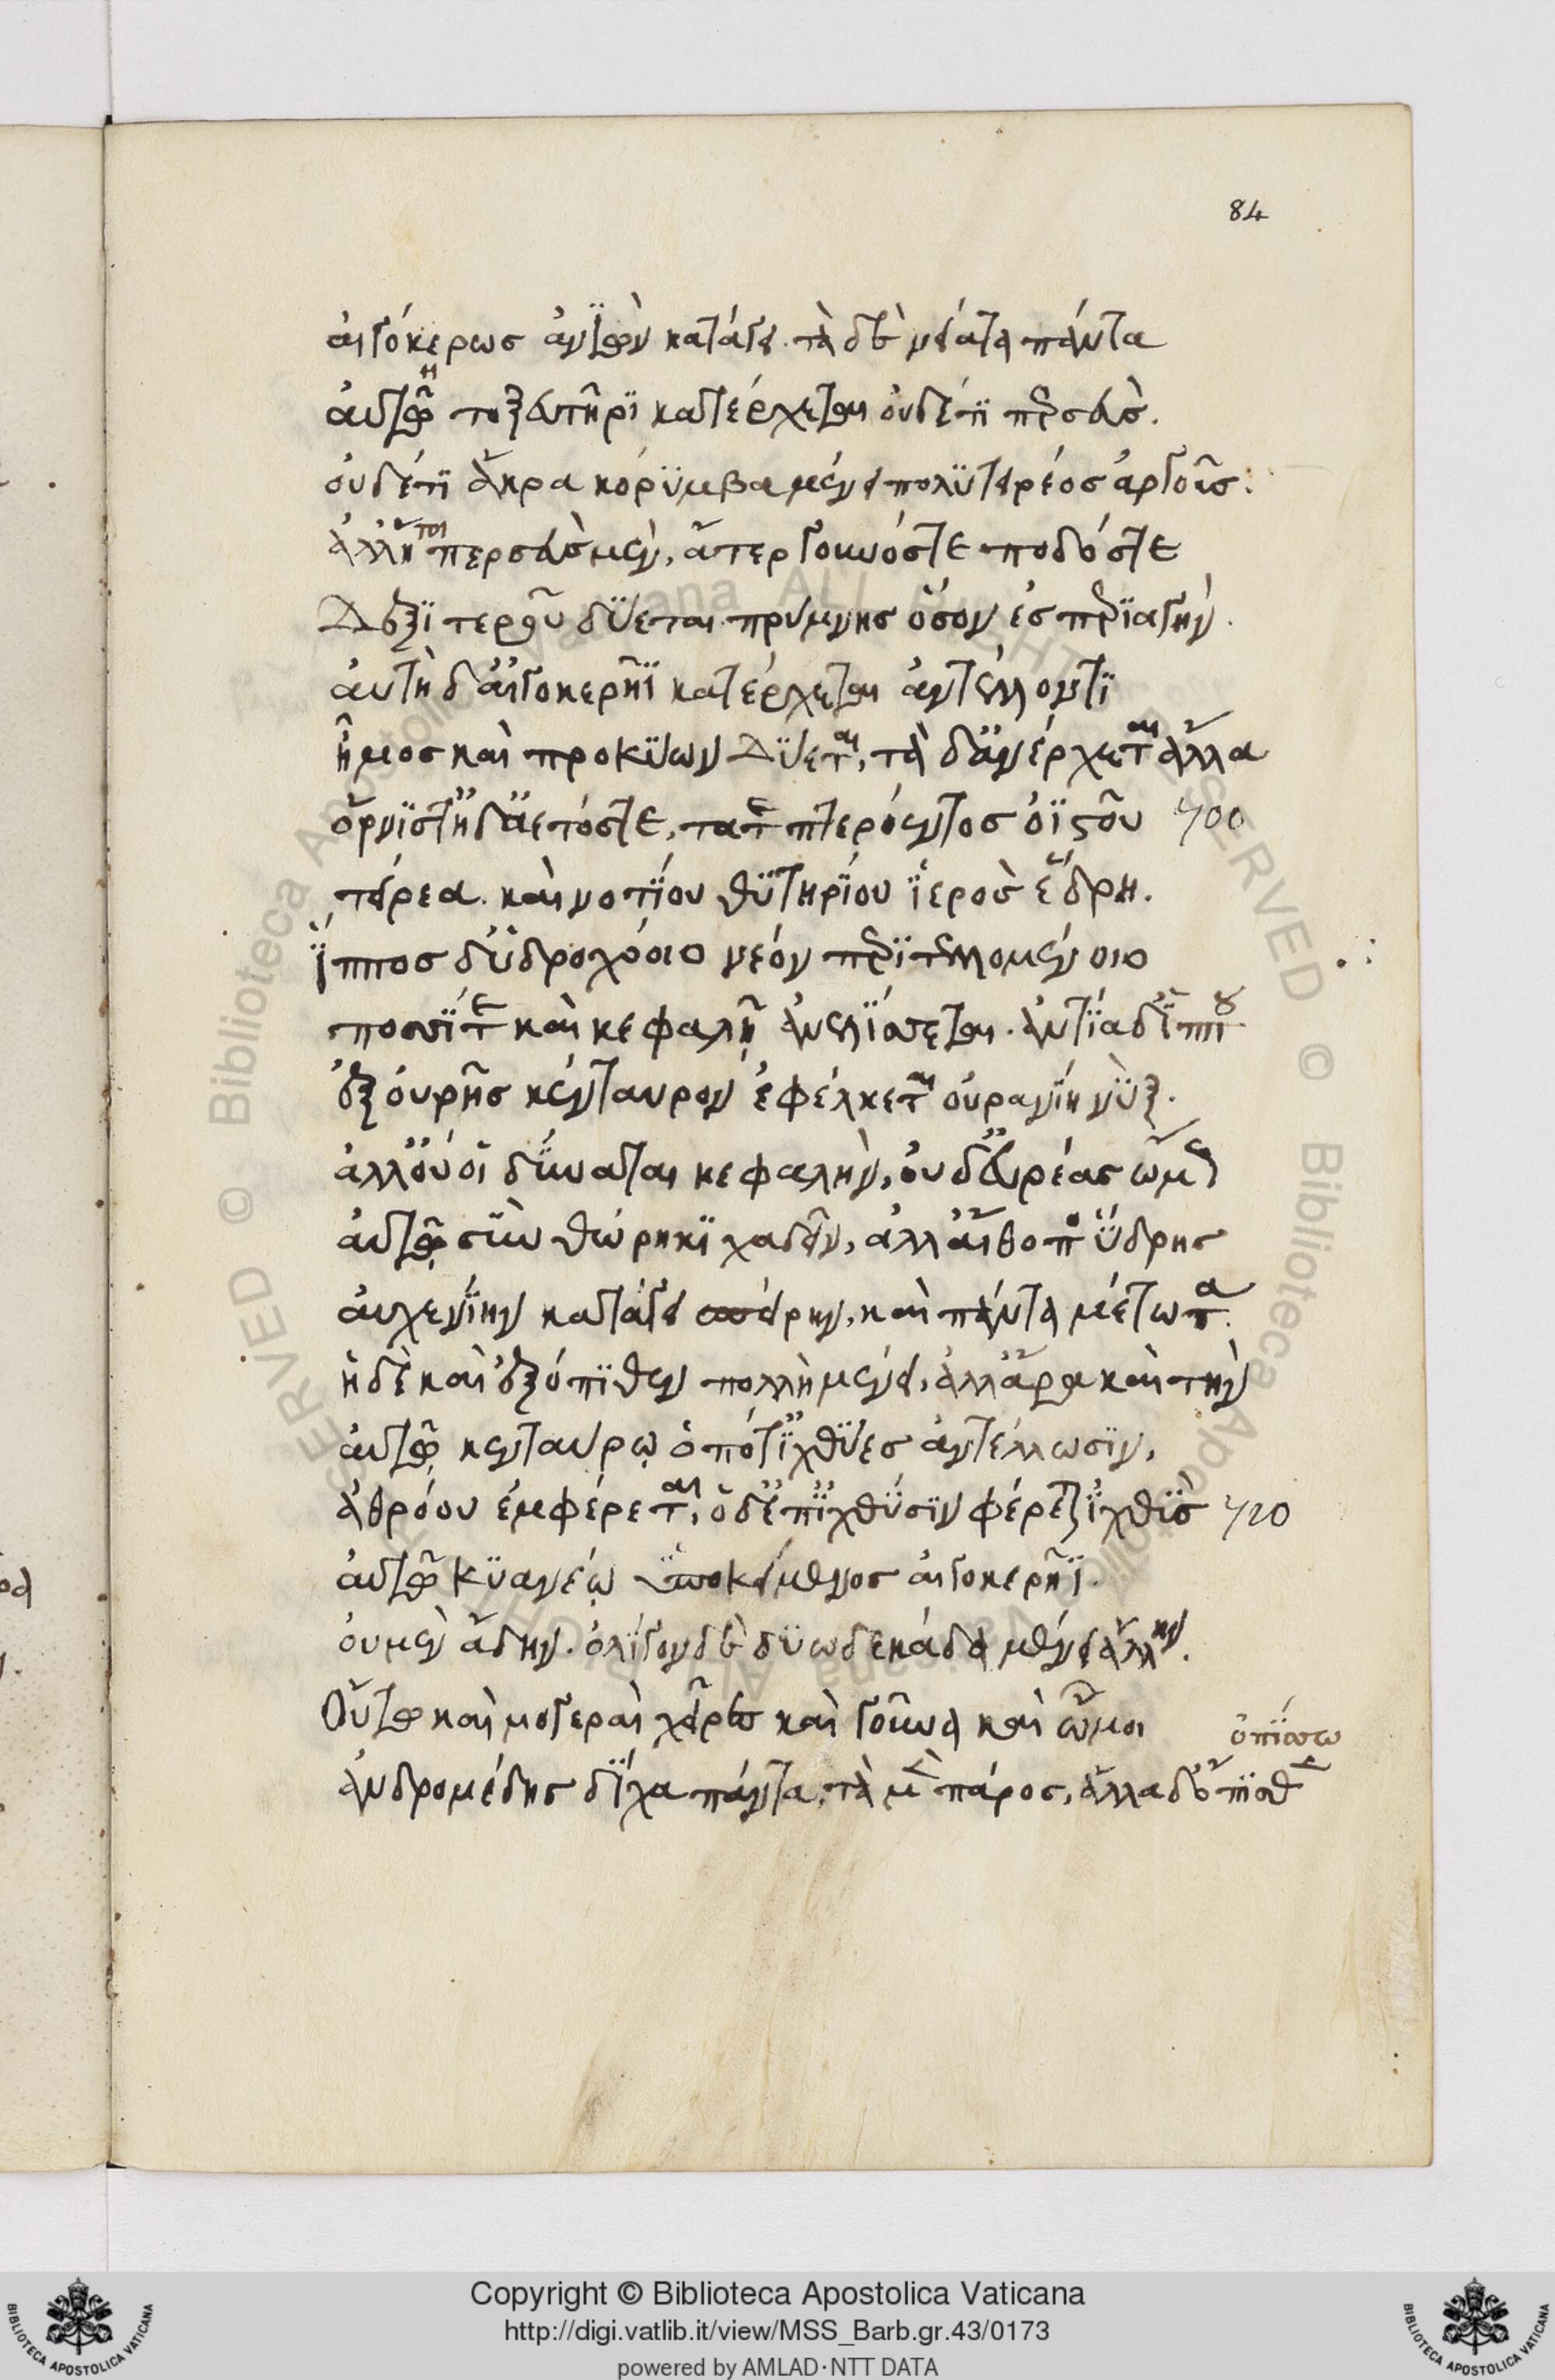 84
αἰγόκερως ἀνϊὼν κατάγει. τὰ δὲ νείατα πάντα
αὐτῶ τοξευτῆρϊ κατέρχεται οὐδέτϊ περσεὺς.
οὐδέτϊ ἄκρα κόρϋμβα μένει πολϋτειρέος ἀργοῦς.
ἀλλήτοι περσεὺς μὲν, ἄτερ γουνόστε ποδόστε
Δεξϊτεροῦ δΰεται. πρύμνης ὅσον ἐς περϊαγήν.
αὐτὴ δ' ἀιγοκερῆϊ κατέρχεται ἀντέλλοντϊ
ἦμος καὶ προκϋων Δΰεται, τὰ δ' ἀνέρχεται ἄλλα
ὄρνϊς τ' ἠδ' ἀετόστε, τατε πτερόεντος ὀϊστοῦ 700
τείρεα. καὶ νοτΐου θϋτηρΐου ϊερὸς ἕδρη.
ΐππος δ' ὑδροχόοιο νέον περϊτελλομένοιο
ποσσΐτε καὶ κεφαλῆ ἀνελΐσσεται. ἀντΐα δ' ΐππου
ἐξ οὐρῆς κένταυρον ἐφέλκεται οὐρανΐη νὺξ.
ἀλλ' οὐ οἱ δύναται κεφαλὴν, οὐδ' εὐρέας ὤμους
αὐτῶ σὺν θώρηκϊ χαδεῖν, ἀλλ' αἴθοπος ὕδρης
αὐχενΐην κατάγει σπείρην, καὶ πάντα μέτωπα.
ἡ δὲ καὶ ἐξόπϊθεν πολλὴ μένει, ἀλλ' ἄρα καὶ τὴν
αὐτῶ κενταύρῳ ὁπότ' ϊχθΰες ἀντέλλωσϊν,
ἀθρόον ἐμφέρεται, ὁ δ' ἐπ' ϊχθΰσϊν φέρεται ϊχθὺς 710
αὐτῶ κϋανέῳ ὑποκείμενος αἰγοκερῆϊ.
οὐ μὲν ἄδην. ὀλΐγον δὲ δϋωδεκάδα μένει ἄλλην.
Οὕτω καὶ μογεραὶ χεῖρες καὶ γοῦνα καὶ ὦμοι
ἀνδρομέδης δΐχα πάντα, τὰ μὲν πάρος, ἄλλα δ' ὄπϊσθε ὀπΐσσω
Copyright © Biblioteca Apostolica Vaticana
http://digi.vatlib.it/view/MSS_Barb.gr.43/0173
powered by AMLAD·NTT DATA